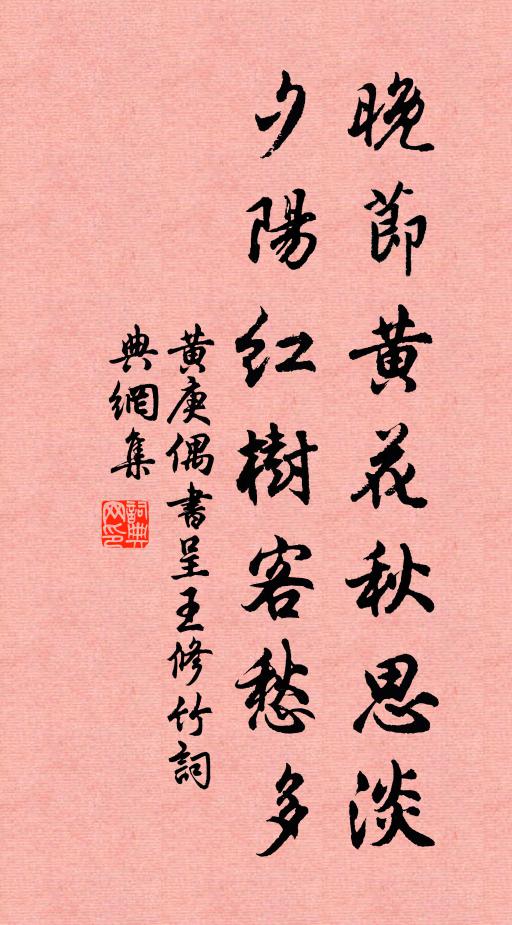 晚節黃花秋思淡
夕陽紅樹客愁多
黃庚偶書呈王修竹詞
典網集
詞典网印